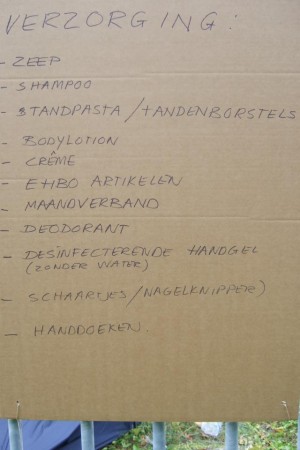 VERZORGING:
- ZEEP
- SHAMPOO
- STANDPASTA / TANDENBORSTELS
- BODYLOTION
- CRÊME
- EHBO ARTIKELEN
- MAANDVERBAND
- DEODORANT
- DESINFECTERENDE HANDGEL
(ZONDER WATER)
- SCHAARTJES/NAGELKNIPPER)
- HANDDOEKEN.